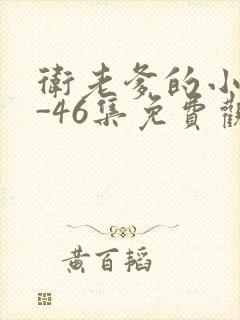 衛老爹的小
-46集免費觀
黃百韜